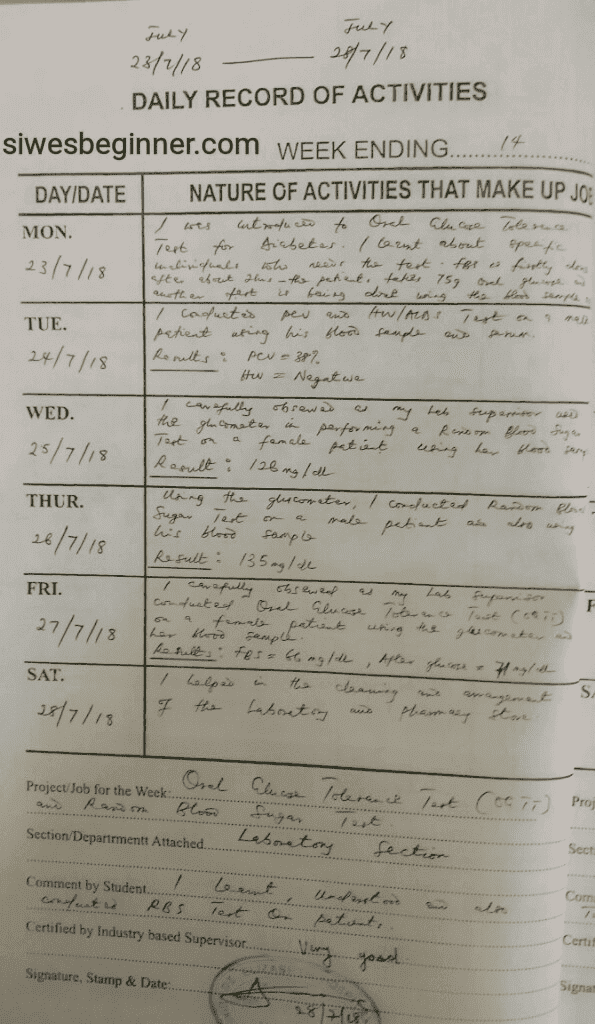 July July
23/7/18 — 28/7/18
DAILY RECORD OF ACTIVITIES
siwesbeginner.com WEEK ENDING 14
DAY/DATE NATURE OF ACTIVITIES THAT MAKE UP JO
MON. 23/7/18
I was introduced to Oral Glucose Tolerance
Test for Diabetes. I learnt about specific
individuals who needs the test. FBS is firstly
after about 2hrs the patient, takes 75g oral glucose
another test is being done using the blood sample
TUE. 24/7/18
I conducted PCV and Test on a
patient using his blood sample and serum.
Results: PCV = 38%
= Negative
WED. 25/7/18
I carefully observed as my Lab supervisor used
the glucometer in performing a Random Blood Sugar
Test on a female patient using her blood
Result: 126 mg/dl
THUR. 26/7/18
Using the glucometer, I conducted Random
Sugar Test on a male patient also using
his blood sample
Result: 135 mg/dl
FRI. 27/7/18
I carefully observed as my Lab supervisor
conducted Oral Glucose Tolerance Test (OGTT)
on a female patient using the glucometer and
her blood sample.
Results: FBS = 66 mg/dl, After glucose = 71 mg/dl
SAT. 28/7/18
I helped in the cleaning and arrangement
of the Laboratory and pharmacy store
Project/Job for the Week: Oral Glucose Tolerance Test (OGTT)
and Random Blood Sugar Test
Section/Departmentt Attached Laboratory Section
Comment by Student I learnt, understood and also
conducted RBS Test on patients.
Certified by Industry based Supervisor Very good
Signature, Stamp & Date: 28/7/18